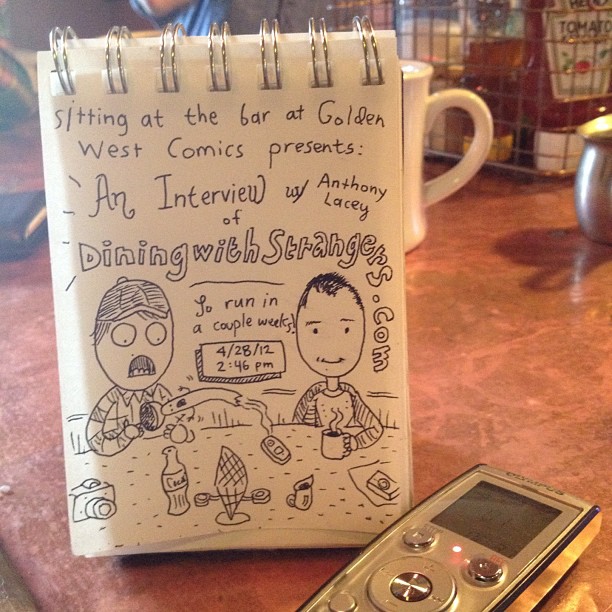 sitting at the bar at Golden
West Comics presents:
An Interview w/ Anthony
Lacey
of
Dining with Strangers.com
To run in
a couple weeks!
4/28/12
2:46 pm
Coca
TOMATO
OLYMPUS